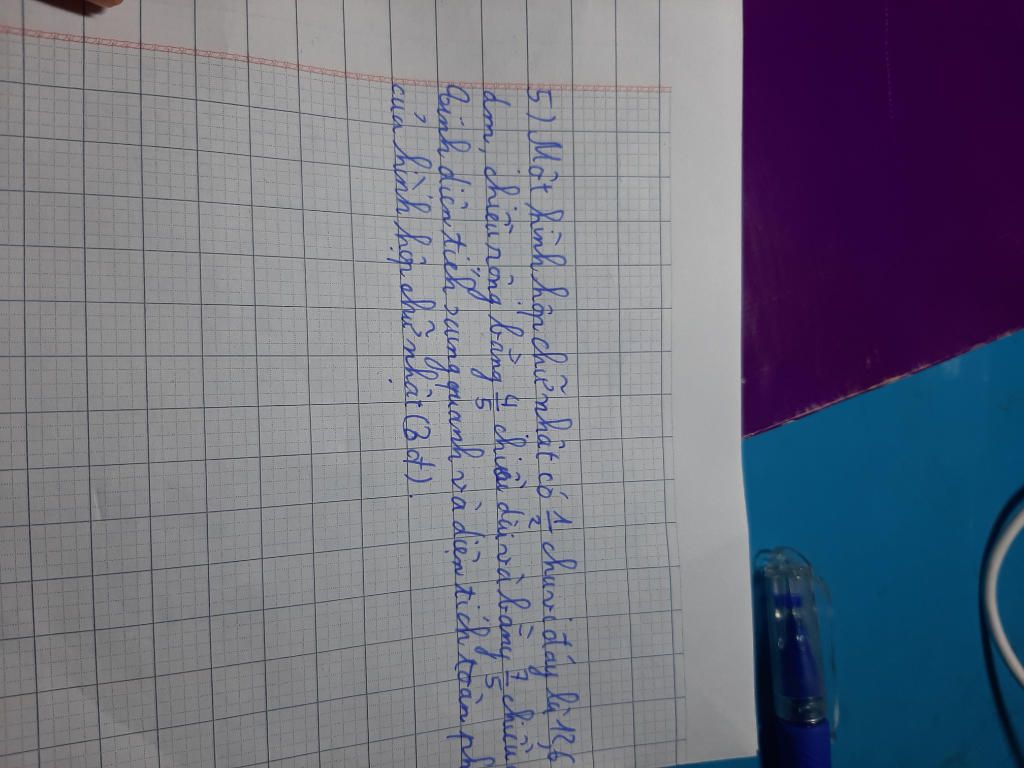 5) Một hình hộp chữ nhật có 1/2 chu vi đáy là 12,6
dm, chiều rộng bằng 4/5 chiều dài và bằng 7/5 chiều
Tính diện tích xung quanh và diện tích toàn ph
của hình hộp chữ nhật (3 đ).